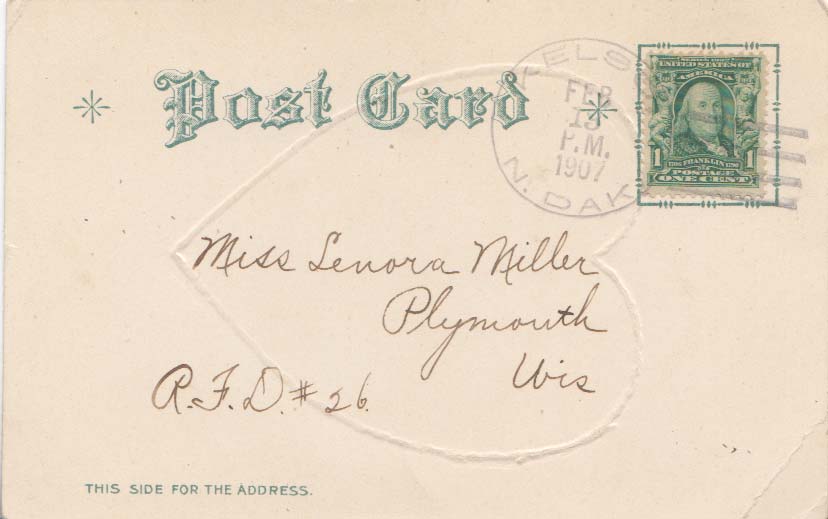 Post Card
FEB
15
P.M.
1907
N. DAK
SERIES 1902
UNITED STATES OF
AMERICA
1706 FRANKLIN 1790
1 POSTAGE 1
ONE CENT
Miss Lenora Miller
Plymouth
Wis
R.F.D. # 26.
THIS SIDE FOR THE ADDRESS.